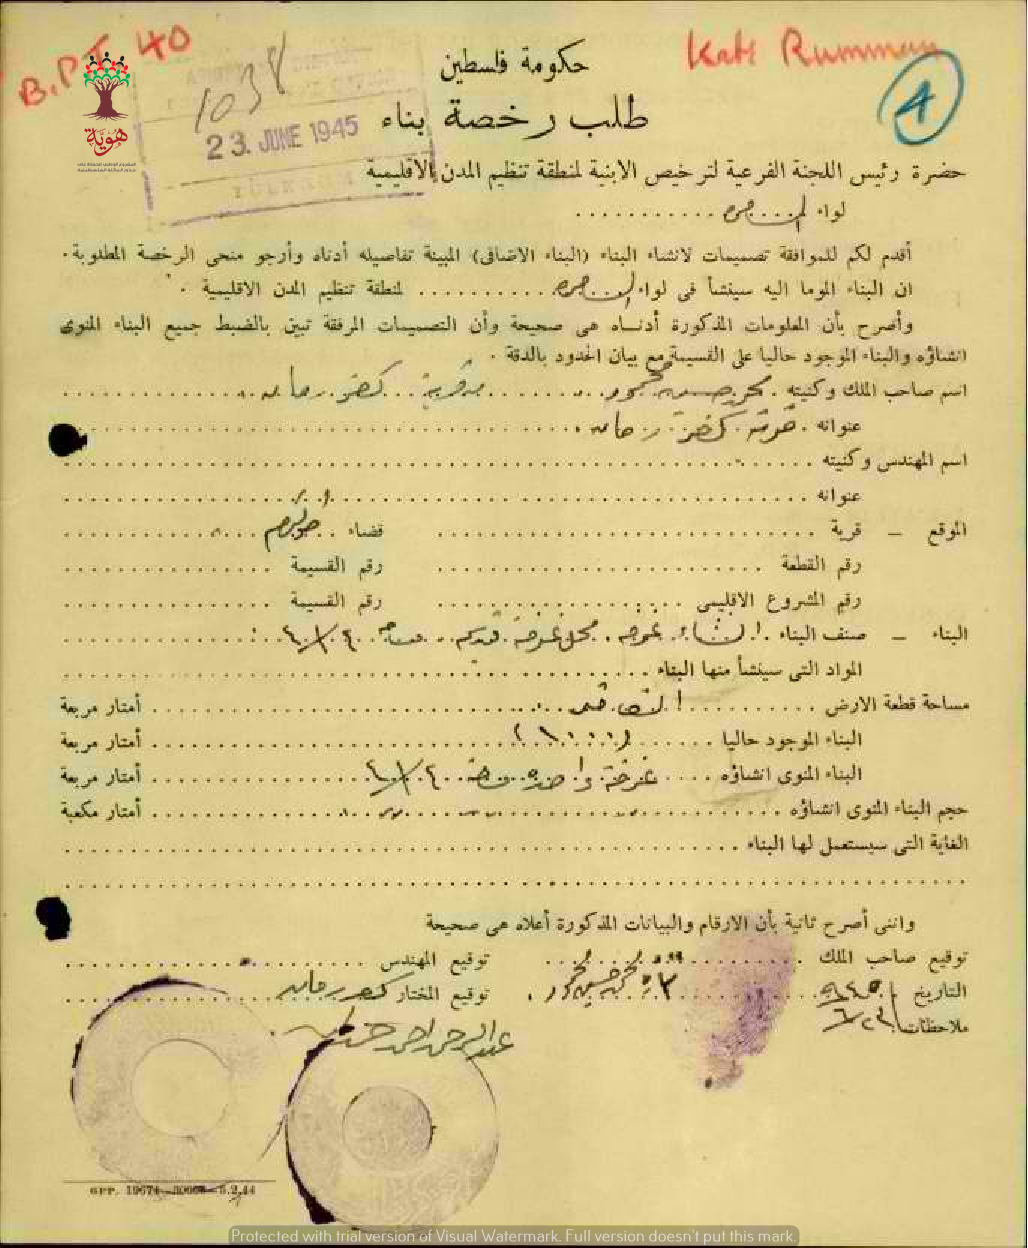 B.P.T 40
Kafr Rumman
4
1038
23. JUNE 1945
TULKARM
هوية
حكومة فلسطين
طلب رخصة بناء
حضرة رئيس اللجنة الفرعية لترخيص الابنية لمنطقة تنظيم المدن الاقليمية
لواء
أقدم لكم للموافقة تصميمات لانشاء البناء (البناء الاضافى) المبينة تفاصيله أدناه وأرجو منحى الرخصة المطلوبة.
ان البناء الموما اليه سينشأ فى لواء لمنطقة تنظيم المدن الاقليمية.
وأصرح بأن المعلومات المذكورة أدناه هى صحيحة وأن التصميمات المرفقة تبين بالضبط جميع البناء المنوى
انشاؤه والبناء الموجود حاليا على القسيمة مع بيان الحدود بالدقة.
اسم صاحب الملك وكنيته محمد حسين محمود من قرية كفر رمان
عنوانه قرية كفر رمان
اسم المهندس وكنيته
عنوانه
الموقع – قرية قضاء طولكرم
رقم القطعة رقم القسيمة
رقم المشروع الاقليمى رقم القسيمة
البناء – صنف البناء انشاء غرفه محل غرفة قديمه
المواد التى سينشأ منها البناء
مساحة قطعة الارض أمتار مربعة
البناء الموجود حاليا أمتار مربعة
البناء المنوى انشاؤه غرفة واحده أمتار مربعة
حجم البناء المنوى انشاؤه أمتار مكعبة
الغاية التى سيستعمل لها البناء
واننى أصرح ثانية بأن الارقام والبيانات المذكورة أعلاه هى صحيحة
توقيع صاحب الملك توقيع المهندس
محمد حسين محمود
التاريخ توقيع المختار كفر رمان
ملاحظات
عبد الرحمن احمد
GPP. 19674—30000—5.2.44
Protected with trial version of Visual Watermark. Full version doesn't put this mark.